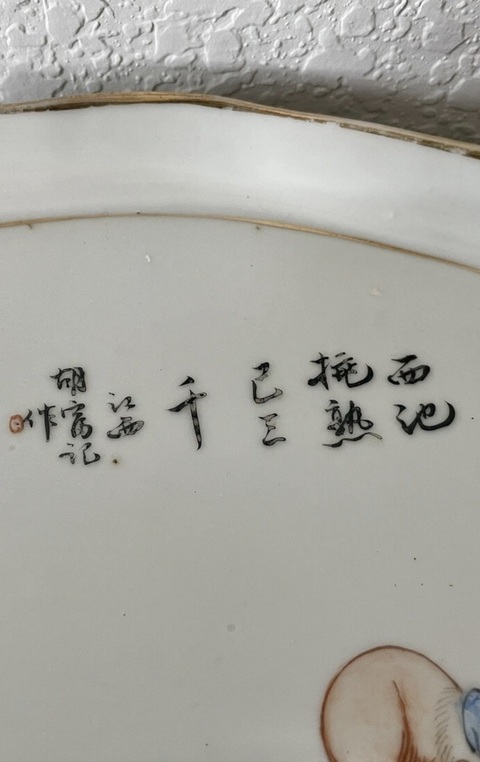 西池
桃熟
已三
千
江西
胡富记
作